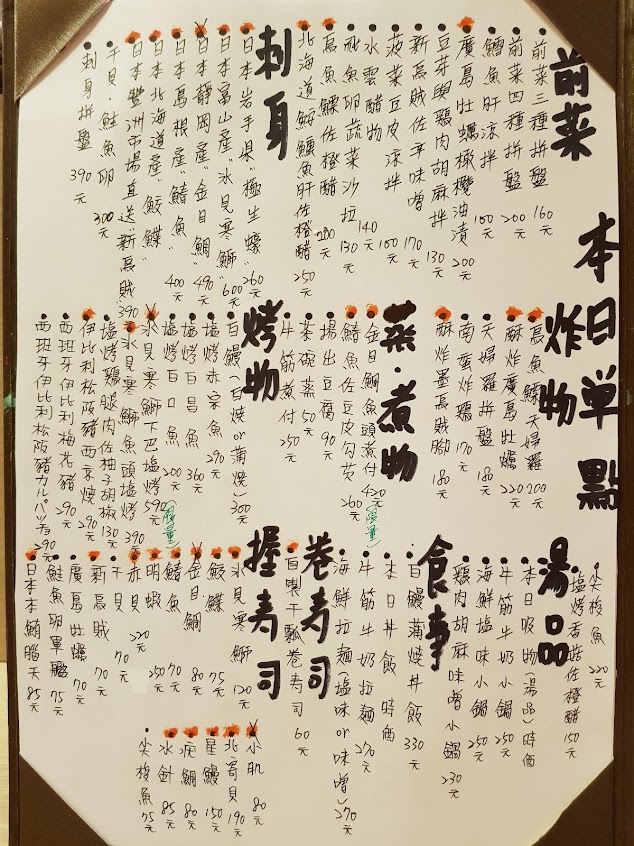 本日単點
前菜
前菜三種拼盤 160元
前菜四種拼盤 200元
鱈魚肝涼拌 150元
廣島牡蠣橄欖油漬 200元
豆芽與雞肉胡麻拌 130元
新烏賊佐辛味噌 170元
菠菜豆皮涼拌 100元
水雲醋物 140元
秋魚卵蔬菜沙拉 130元
烏魚鰾佐橙醋 200元
北海道鮟鱇魚肝佐橙醋 250元
刺身
日本岩手県"極生蠔" 260元
日本富山産"氷見寒鰤" 600元
日本靜岡産"金目鯛" 490元
日本島根産"鰆魚" 400元
日本北海道産"鮫鰈"
日本豐洲市場直送"新烏賊" 390元
干貝·鮭魚卵 300元
刺身拼盤 390元
炸物
烏魚鰾天婦羅 200元
酥炸廣島牡蠣 220元
天婦羅拼盤 180元
南蛮炸鶏 170元
酥炸墨烏賊腳 180元
蒸·煮物
金目鯛魚頭煮付 420元 (限量)
鰆魚佐豆皮勾芡 260元
揚出豆腐 90元
茶碗蒸 50元
牛筋煮付 250元
烤物
白鰻(白焼or蒲焼) 300元
塩烤赤宗魚 290元
塩烤白昌魚 360元
塩烤白口魚 200元
氷見寒鰤下巴塩烤 590元 (限量)
氷見寒鰤魚頭塩烤 390元
塩烤鶏腿肉佐柚子胡椒 130元
伊比利松阪豬西京燒 290元
西班牙伊比利梅花豬 290元
西班牙伊比利松阪豬カルパッチョ 290元
尖梭魚 220元
塩烤香菇佐橙醋 150元
湯品
本日吸物(湯品) 時価
牛筋牛奶小鍋 250元
海鮮塩味小鍋 250元
鶏肉胡麻味噌小鍋 230元
食事
白鰻蒲燒丼飯 330元
本日丼飯 時価
牛筋牛奶拉麵 270元
海鮮拉麵(塩味or味噌) 270元
卷寿司
自製干瓢卷寿司 60元
握寿司
氷見寒鰤 120元
鮫鰈 75元
金目鯛 80元
鰆魚 70元
明蝦 250元
赤貝 220元
干貝 70元
新烏賊 70元
廣島牡蠣 70元
鮭魚卵軍艦 75元
日本本鮪腦天 85元
小肌 80元
北寄貝 190元
星鰻 150元
疣鯛 80元
水針 85元
尖梭魚 75元